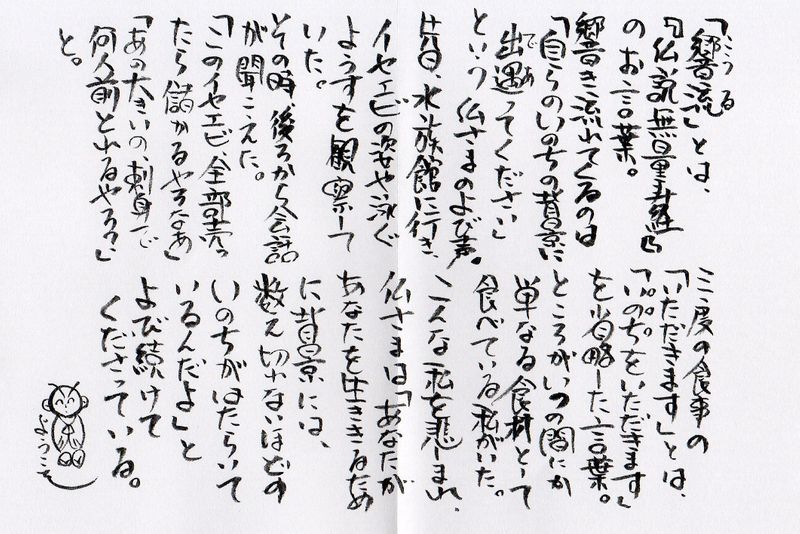 「響流」とは、
こうる
『仏説無量寿経』
のお言葉。
響き流れてくるのは
「自らのいのちの背景に
出遇ってください」
であ
という仏さまのよび声。
先日、水族館に行き、
イセエビの姿や泳ぐ
ようすを観察して
いた。
その時、後ろから会話
が聞こえた。
「このイセエビ、全部売っ
たら儲かるやろなぁ」
「あの大きいの、刺身で
何人前とれるやろ?」
と。
三度の食事の
「いただきます」とは、
「いのちをいただきます」
を省略した言葉。
ところがいつの間にか
単なる食材として
食べている私がいた。
こんな私を悲しまれ、
仏さまは「あなたが
あなたを生ききるため
に背景には、
数え切れないほどの
いのちがはたらいて
いるんだよ」と
よび続けて
くださっている。
ようこそ